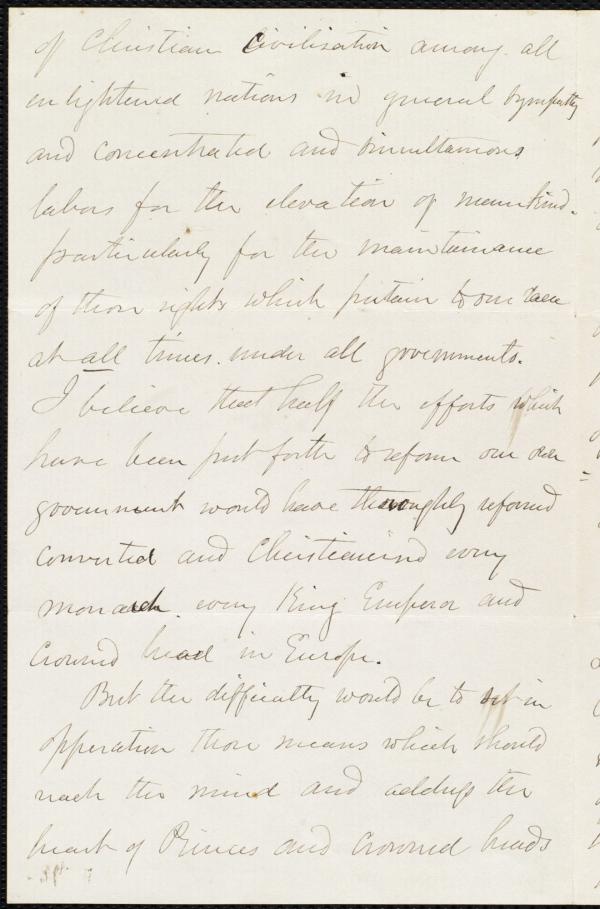 of Christian Civilisation among all
enlightened nations in general sympathy
and concentrated and simultanious
labors for the elevation of mankind.
particularly for the maintainance
of those rights which pertain to our race
at all times. under all governments.
I believe that half the efforts which
have been put forth to reform our own
government would have thoroughly reformed
converted and Christianised every
monarch. every King Emperor and
crowned head in Europe.
But the difficulty would be to set in
opperation those means which should
reach the mind and address the
heart of Princes and crowned heads